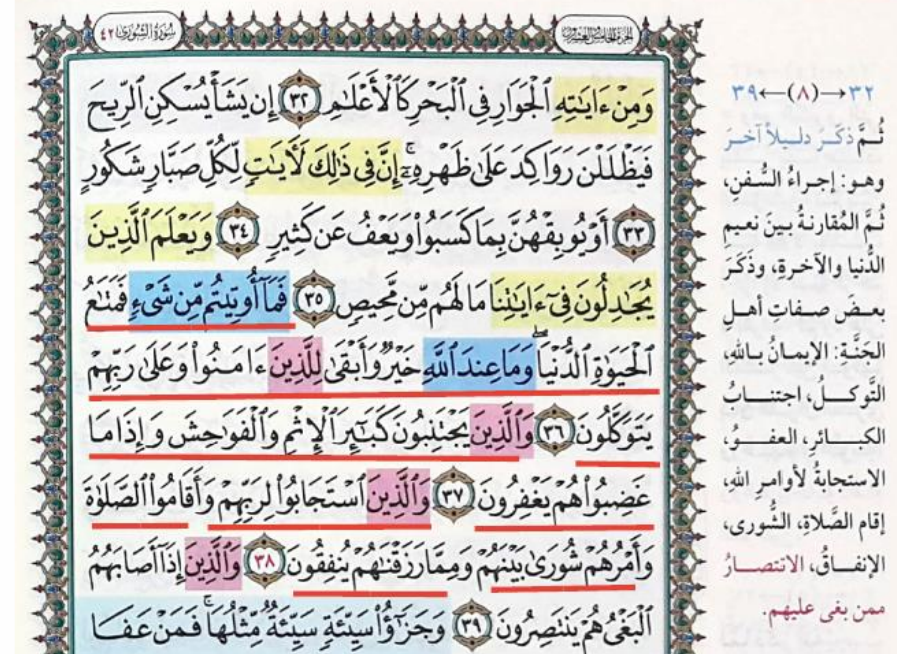 الجزء الخامس والعشرون
سُورَةُ الشُّورَىٰ ٤٢
وَمِنْ ءَايَٰتِهِ ٱلْجَوَارِ فِى ٱلْبَحْرِ كَٱلْأَعْلَٰمِ ٣٢ إِن يَشَأْ يُسْكِنِ ٱلرِّيحَ
فَيَظْلَلْنَ رَوَاكِدَ عَلَىٰ ظَهْرِهِۦٓۚ إِنَّ فِى ذَٰلِكَ لَءَايَٰتٍ لِّكُلِّ صَبَّارٍ شَكُورٍ
٣٣ أَوْ يُوبِقْهُنَّ بِمَا كَسَبُوا۟ وَيَعْفُ عَن كَثِيرٍ ٣٤ وَيَعْلَمَ ٱلَّذِينَ
يُجَٰدِلُونَ فِىٓ ءَايَٰتِنَا مَا لَهُم مِّن مَّحِيصٍ ٣٥ فَمَآ أُوتِيتُم مِّن شَىْءٍ فَمَتَٰعُ
ٱلْحَيَوٰةِ ٱلدُّنْيَاۖ وَمَا عِندَ ٱللَّهِ خَيْرٌ وَأَبْقَىٰ لِلَّذِينَ ءَامَنُوا۟ وَعَلَىٰ رَبِّهِمْ
يَتَوَكَّلُونَ ٣٦ وَٱلَّذِينَ يَجْتَنِبُونَ كَبَٰٓئِرَ ٱلْإِثْمِ وَٱلْفَوَٰحِشَ وَإِذَا مَا
غَضِبُوا۟ هُمْ يَغْفِرُونَ ٣٧ وَٱلَّذِينَ ٱسْتَجَابُوا۟ لِرَبِّهِمْ وَأَقَامُوا۟ ٱلصَّلَوٰةَ
وَأَمْرُهُمْ شُورَىٰ بَيْنَهُمْ وَمِمَّا رَزَقْنَٰهُمْ يُنفِقُونَ ٣٨ وَٱلَّذِينَ إِذَآ أَصَابَهُمُ
ٱلْبَغْىُ هُمْ يَنتَصِرُونَ ٣٩ وَجَزَٰٓؤُا۟ سَيِّئَةٍ سَيِّئَةٌ مِّثْلُهَاۖ فَمَنْ عَفَا
٣٢→(٨)←٣٩
ثُمَّ ذكَرَ دليلًا آخرَ
وهو: إجراءُ السُّفنِ،
ثُمَّ المُقارنةُ بينَ نعيمِ
الدُّنيا والآخرةِ، وذَكَرَ
بعضَ صفاتِ أهلِ
الجَنَّةِ: الإيمانُ باللهِ،
التَّوكلُ، اجتنابُ
الكبائرِ، العفوُ،
الاستجابةُ لأوامرِ اللهِ،
إقام الصَّلاةِ، الشُّورى،
الإنفاقُ، الانتصارُ
ممن بغى عليهم.